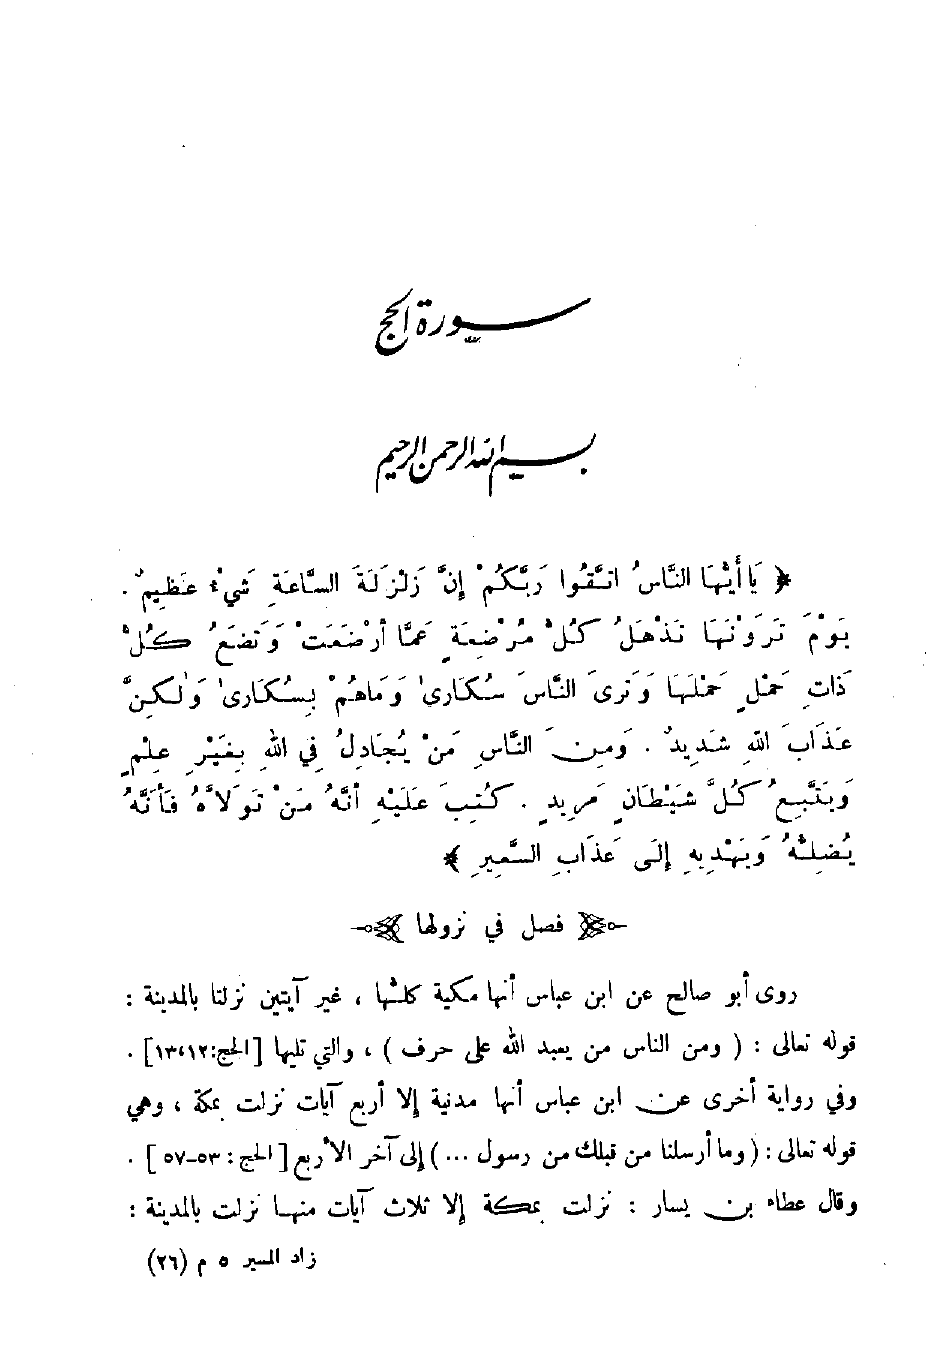 سورة الحج
بسم الله الرحمن الرحيم
﴿ يَا أَيُّهَا النَّاسُ اتَّقُوا رَبَّكُمْ إِنَّ زَلْزَلَةَ السَّاعَةِ شَيْءٌ عَظِيمٌ .
يَوْمَ تَرَوْنَهَا تَذْهَلُ كُلُّ مُرْضِعَةٍ عَمَّا أَرْضَعَتْ وَتَضَعُ كُلُّ
ذَاتِ حَمْلٍ حَمْلَهَا وَتَرَى النَّاسَ سُكَارَىٰ وَمَا هُمْ بِسُكَارَىٰ وَلٰكِنَّ
عَذَابَ اللهِ شَدِيدٌ . وَمِنَ النَّاسِ مَنْ يُجَادِلُ فِي اللهِ بِغَيْرِ عِلْمٍ
وَيَتَّبِعُ كُلَّ شَيْطَانٍ مَرِيدٍ . كُتِبَ عَلَيْهِ أَنَّهُ مَنْ تَوَلاَّهُ فَأَنَّهُ
يُضِلُّهُ وَيَهْدِيهِ إِلَى عَذَابِ السَّعِيرِ ﴾
فصل في نزولها
روى أبو صالح عن ابن عباس أنها مكية كلُّها ، غير آيتين نزلتا بالمدينة :
قوله تعالى : ( ومن الناس من يعبد الله على حرف ) ، والتي تليها [الحج:١٢،١٣] .
وفي رواية أخرى عن ابن عباس أنها مدنية إلا أربع آيات نزلت بمكة ، وهي
قوله تعالى : ( وما أرسلنا من قبلك من رسول ... ) إلى آخر الأربع [ الحج : ٥٣-٥٧ ] .
وقال عطاء بن يسار : نزلت بمكة إلا ثلاث آيات منها نزلت بالمدينة :
زاد المسير ٥ م (٢٦)